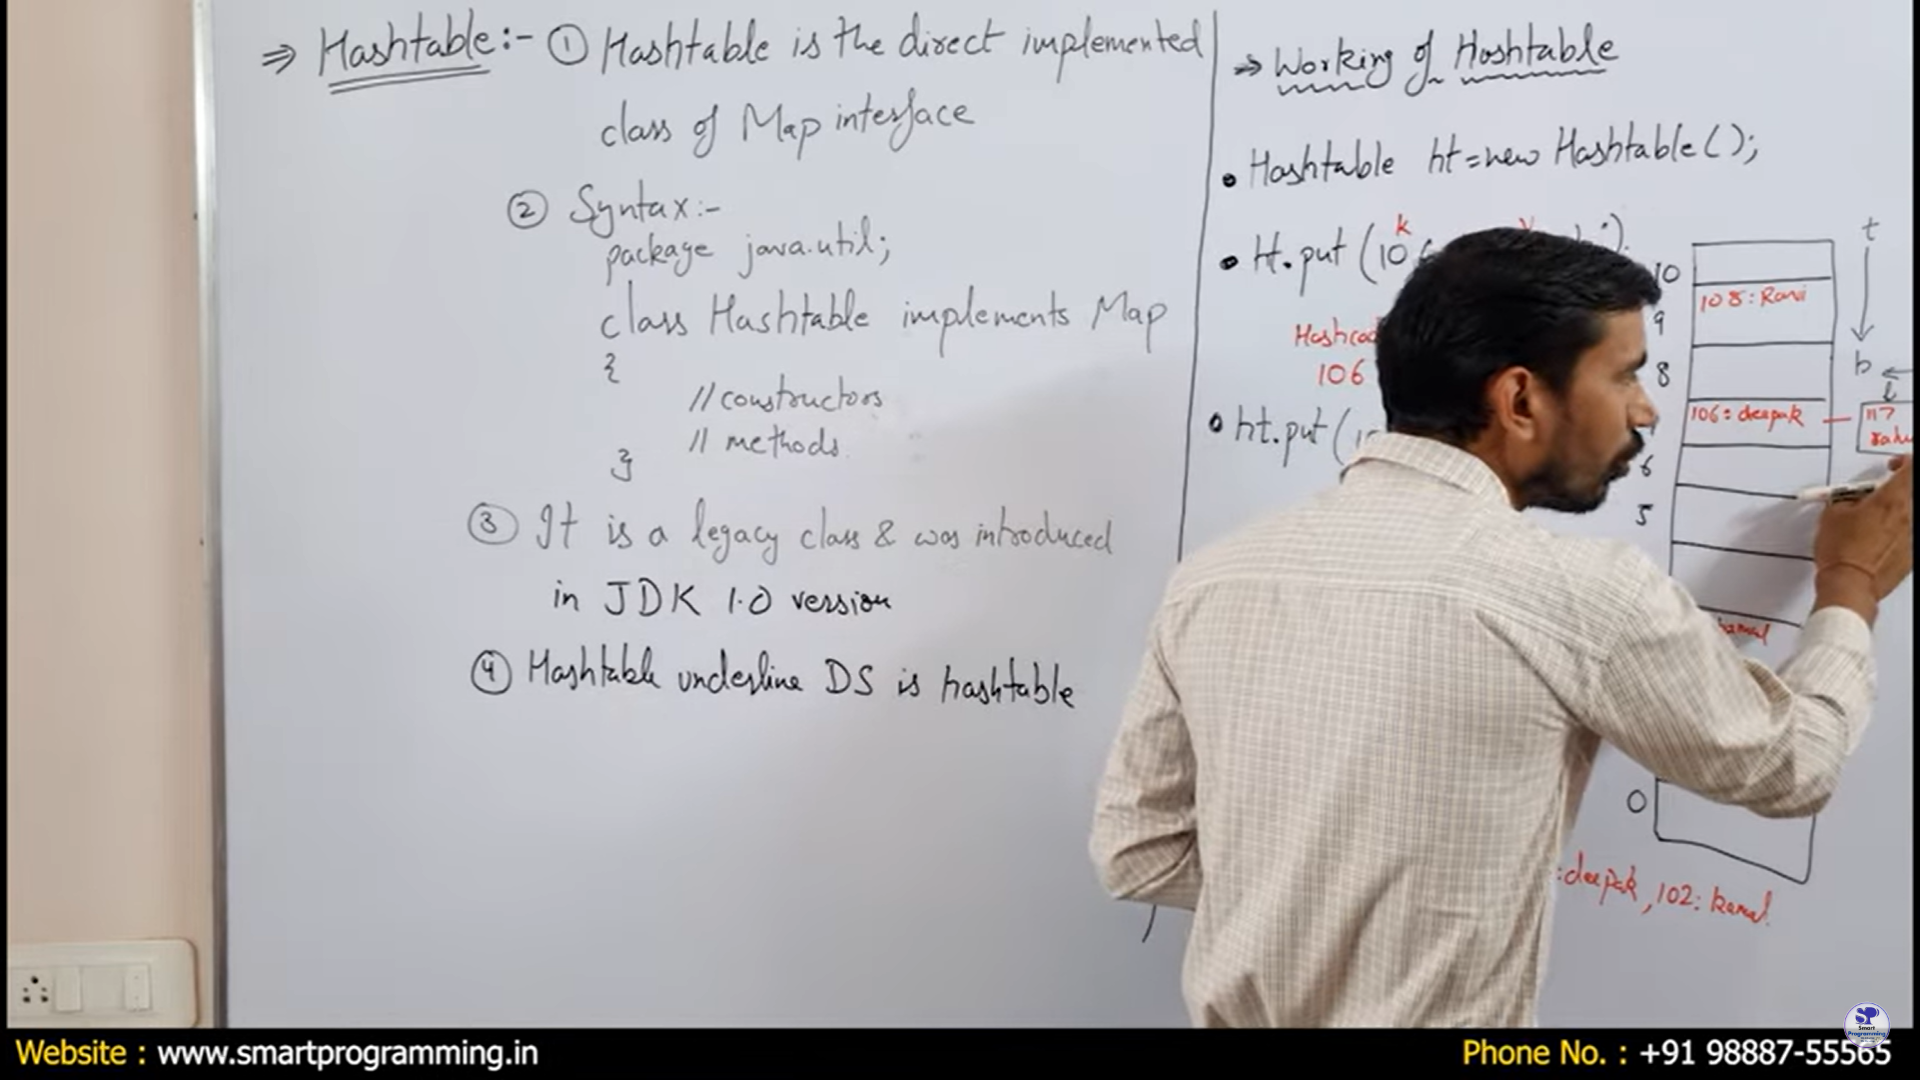 ⇒ Hashtable :- ① Hashtable is the direct implemented
class of Map interface
② Syntax :-
package java.util;
class Hashtable implements Map
{
// constructors
// methods
}
③ It is a legacy class & was introduced
in JDK 1.0 version
④ Hashtable underline DS is hashtable
→ Working of Hashtable
• Hashtable ht = new Hashtable();
k
• Ht.put (10
106
• ht.put (
t
b
10
108 : Ravi
9
8
106 : deepak
117
6
5
0
: deepak , 102 : kamal
Website : www.smartprogramming.in
Phone No. : +91 98887-55565
SP
Smart
Programming